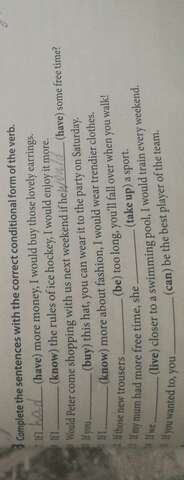 Complete the sentences with the correct conditional form of the verb.
If I had (have) more money, I would buy those lovely earrings.
If I ______ (know) the rules of ice hockey, I would enjoy it more.
Would Peter come shopping with us next weekend if he ______ (have) some free time?
If you ______ (buy) this hat, you can wear it to the party on Saturday.
If I ______ (know) more about fashion, I would wear trendier clothes.
If those new trousers ______ (be) too long, you'll fall over when you walk!
If my mum had more free time, she ______ (take up) a sport.
If we ______ (live) closer to a swimming pool, I would train every weekend.
If you wanted to, you ______ (can) be the best player of the team.